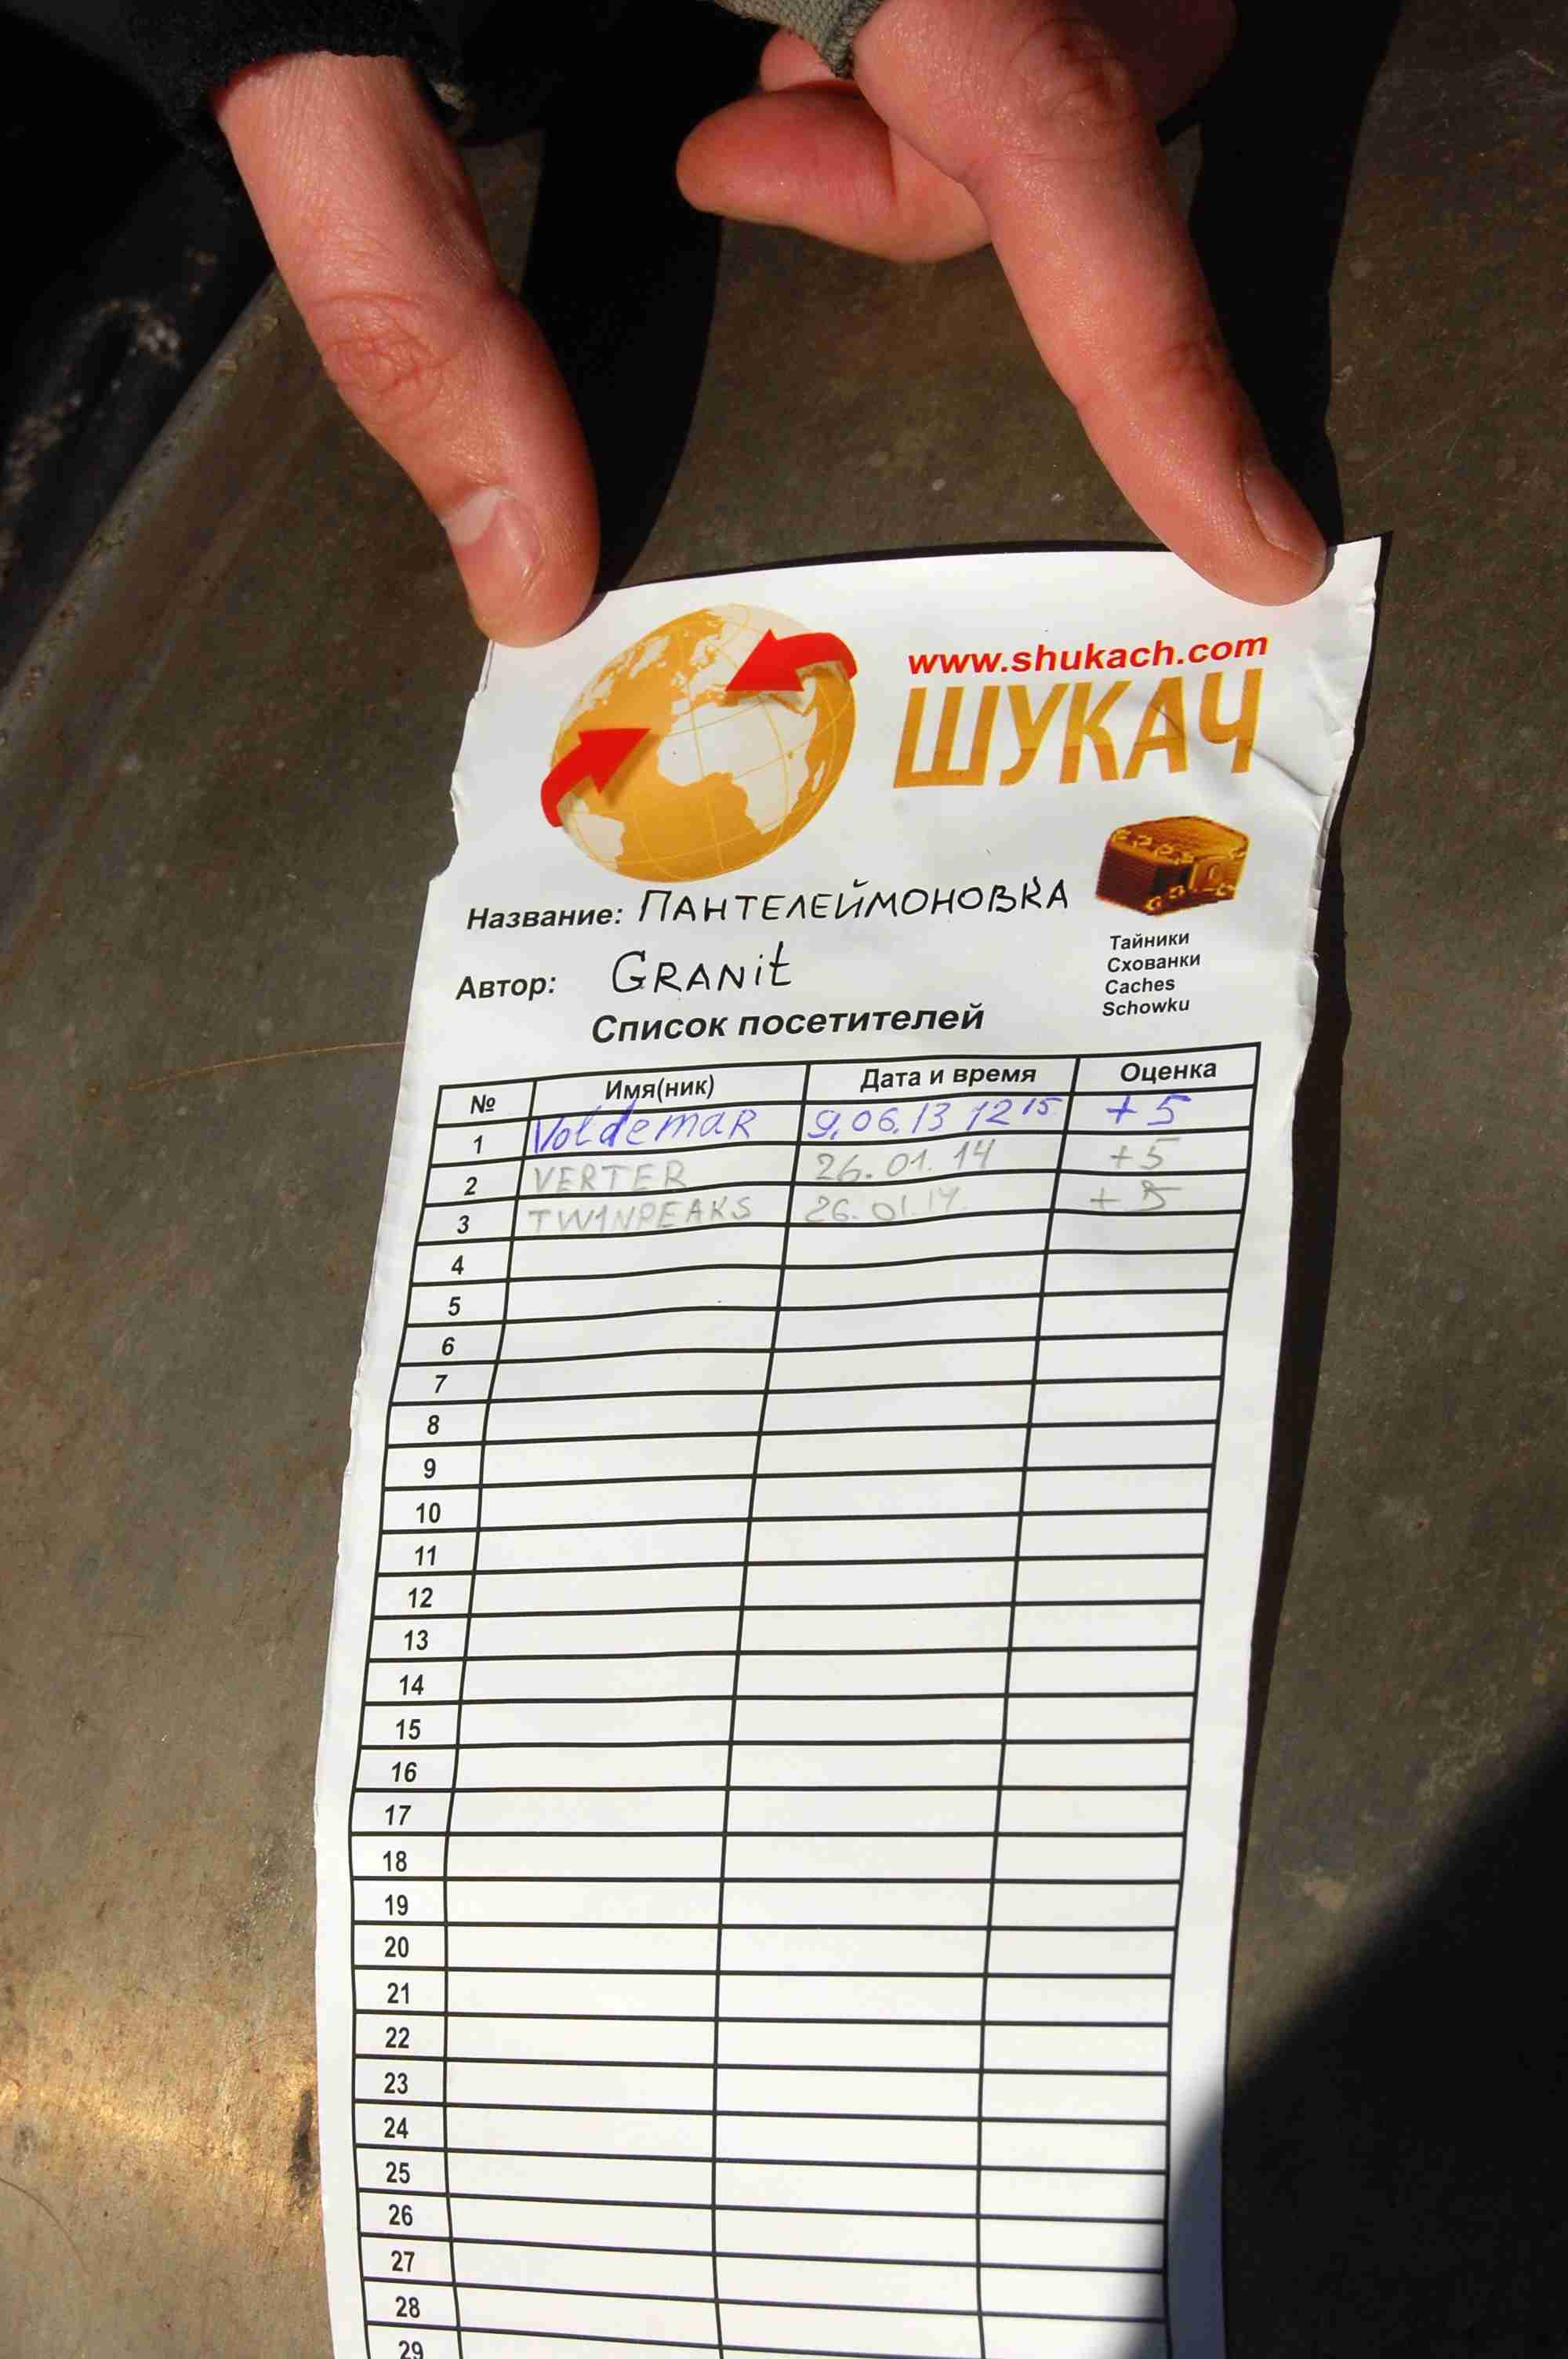 www.shukach.com
ШУКАЧ
Название: ПАНТЕЛЕЙМОНОВКА
Автор: GRANit
Тайники
Схованки
Caches
Schowku
Список посетителей
№ Имя(ник) Дата и время Оценка
1 VoldemaR 9.06.13 12 15 +5
2 VERTER 26.01.14 +5
3 TWINPEAKS 26.01.14. +5
4
5
6
7
8
9
10
11
12
13
14
15
16
17
18
19
20
21
22
23
24
25
26
27
28
29